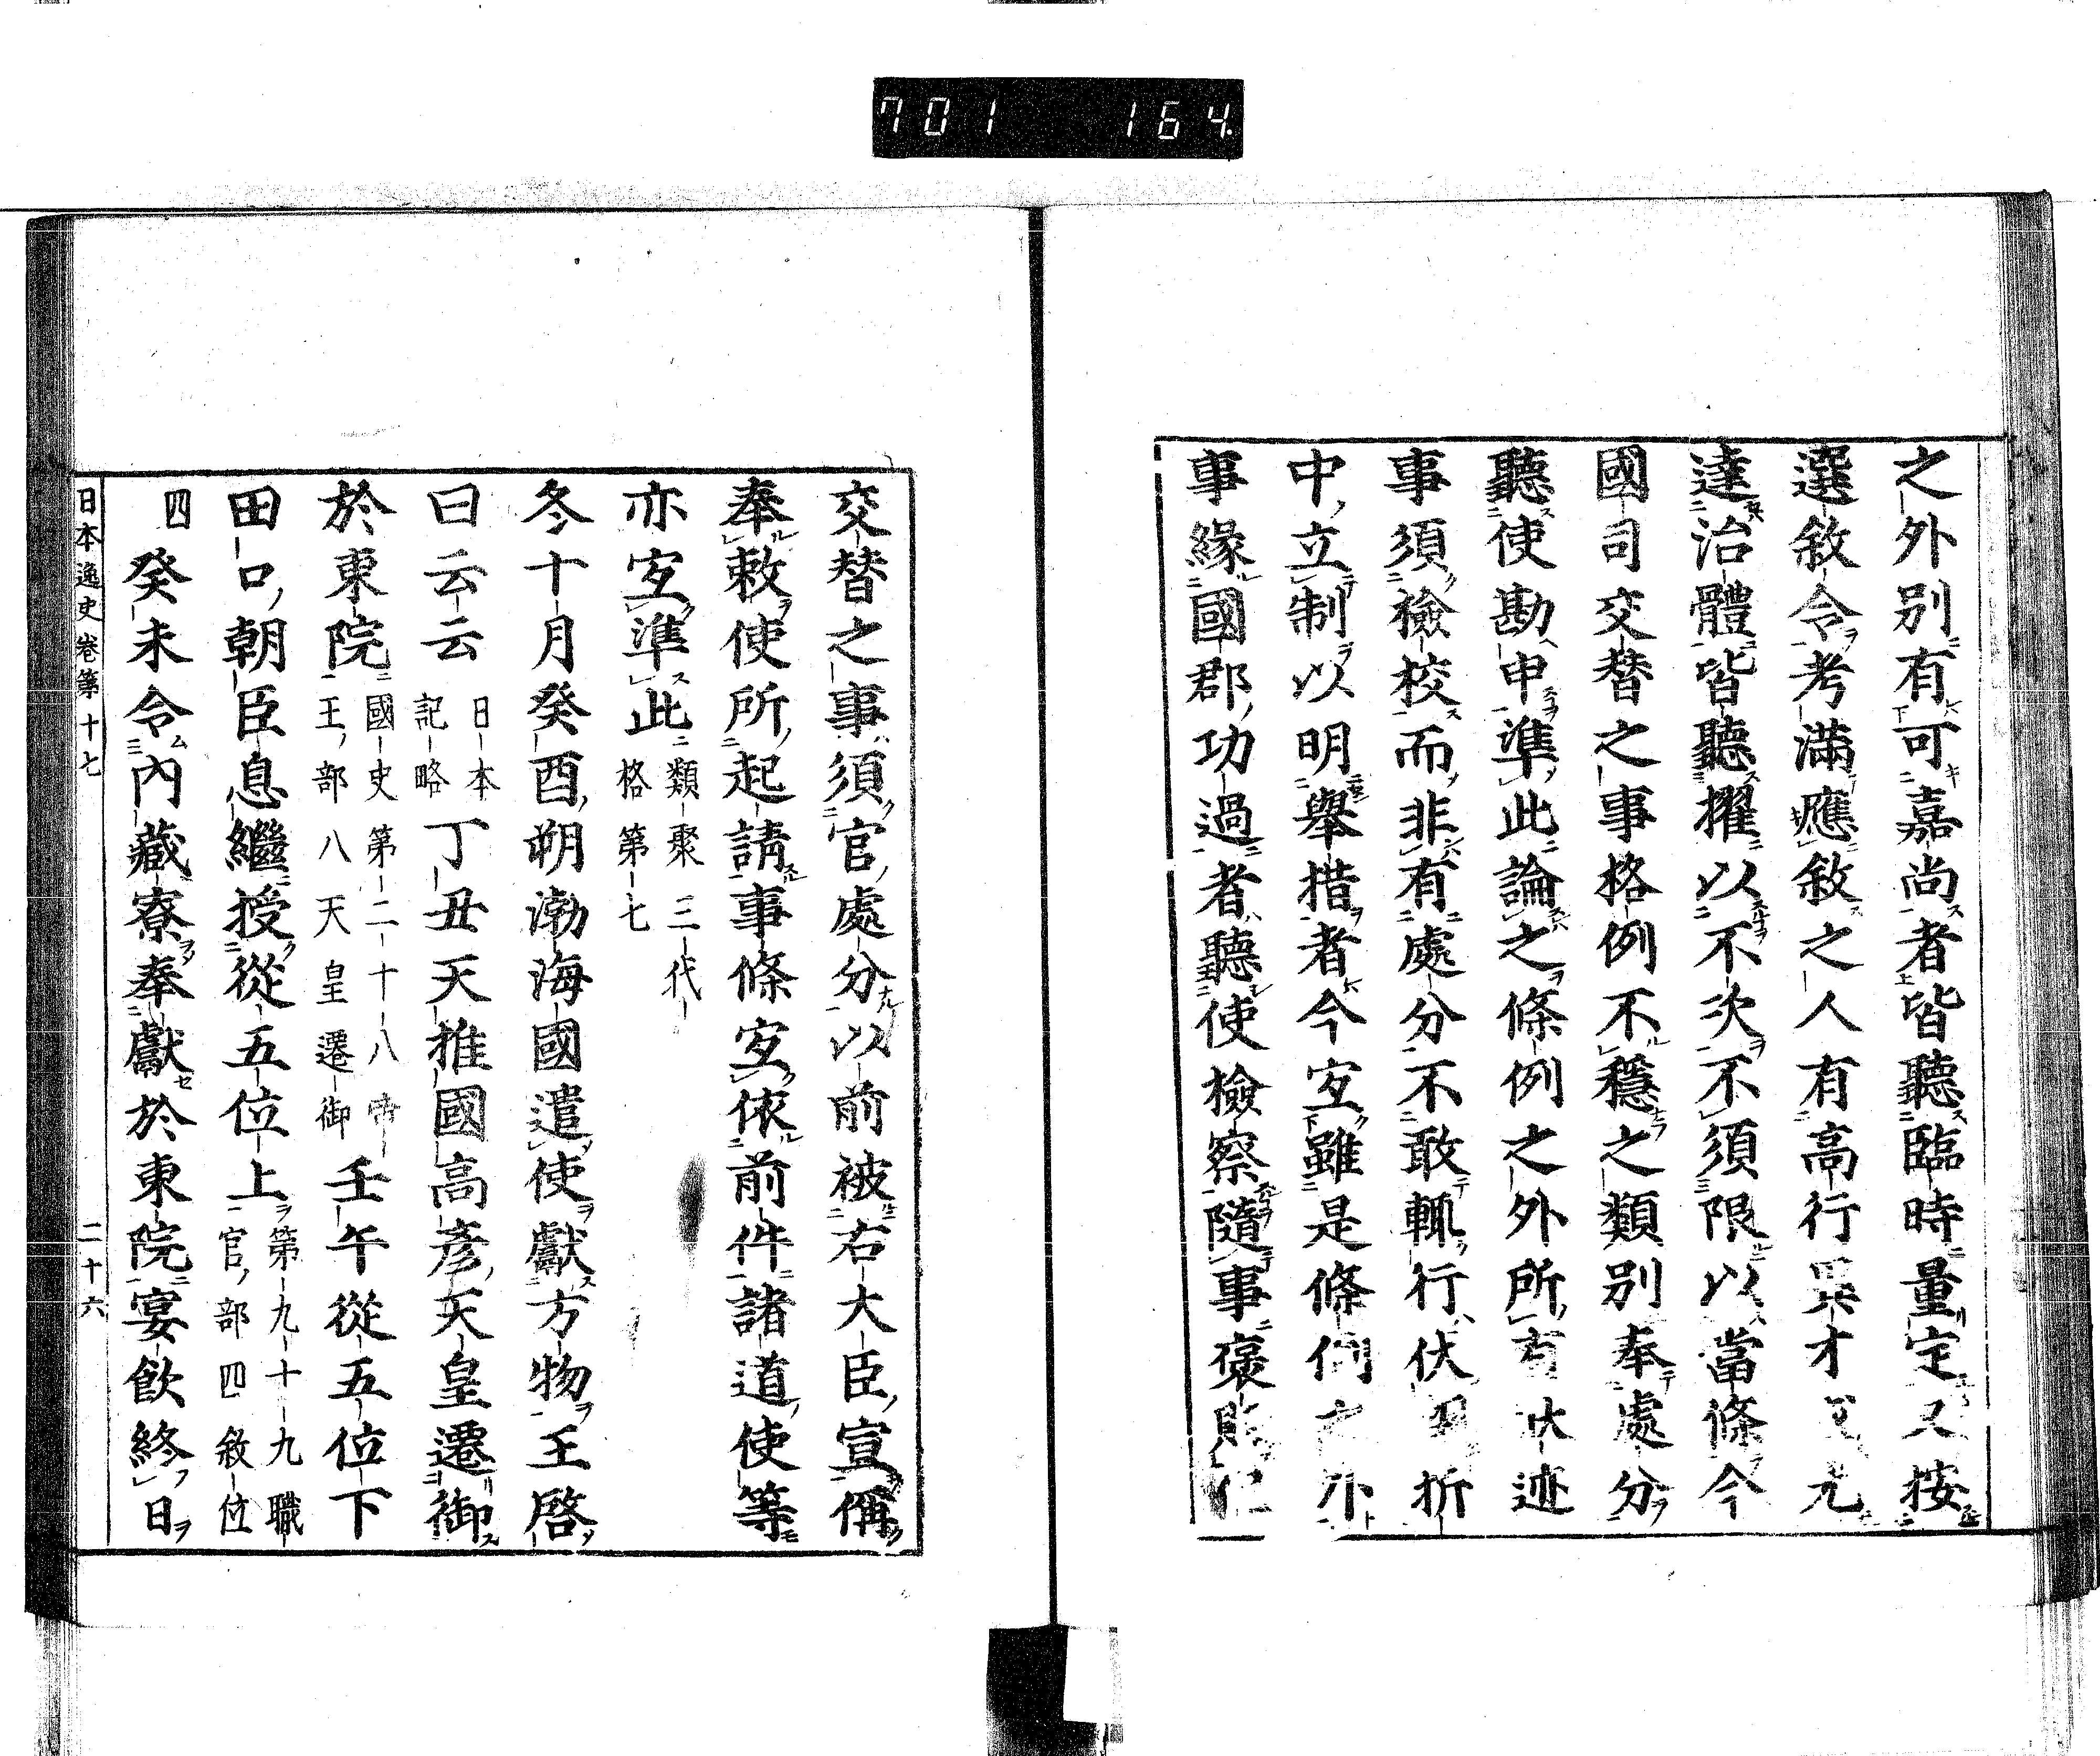 701 164
之外別有可嘉尚者皆聽臨時量定又按
選敘令考滿應敘之人有高行異才
達治體皆聽擢以不次不須限以當條今
國司交替之事格例不穩之類別奉處分
聽使勘申準此論之條例之外所有狀迹
事須檢校而非有處分不敢輒行伏折
中立制以明舉措者今宐雖是條例之外
事緣國郡功過者聽使檢察隨事褒貶
交替之事須官處分以前被右大臣宣偁
奉敕使所起請事條宐依前件諸道使等
亦宐準此
類聚三代
格第七
冬十月癸酉朔渤海國遣使獻方物王啓
曰云云
日本
記略
丁丑天推國高彥天皇遷御
於東院
國史第二十八帝
王部八天皇遷御
壬午從五位下
田口朝臣息繼授從五位上
第九十九職
官部四敘位
四
癸未令內藏寮奉獻於東院宴飲終日
日本逸史卷第十七 二十六